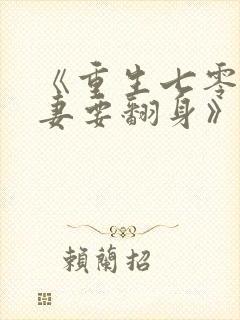 《重生七零
妻要翻身》
賴蘭招